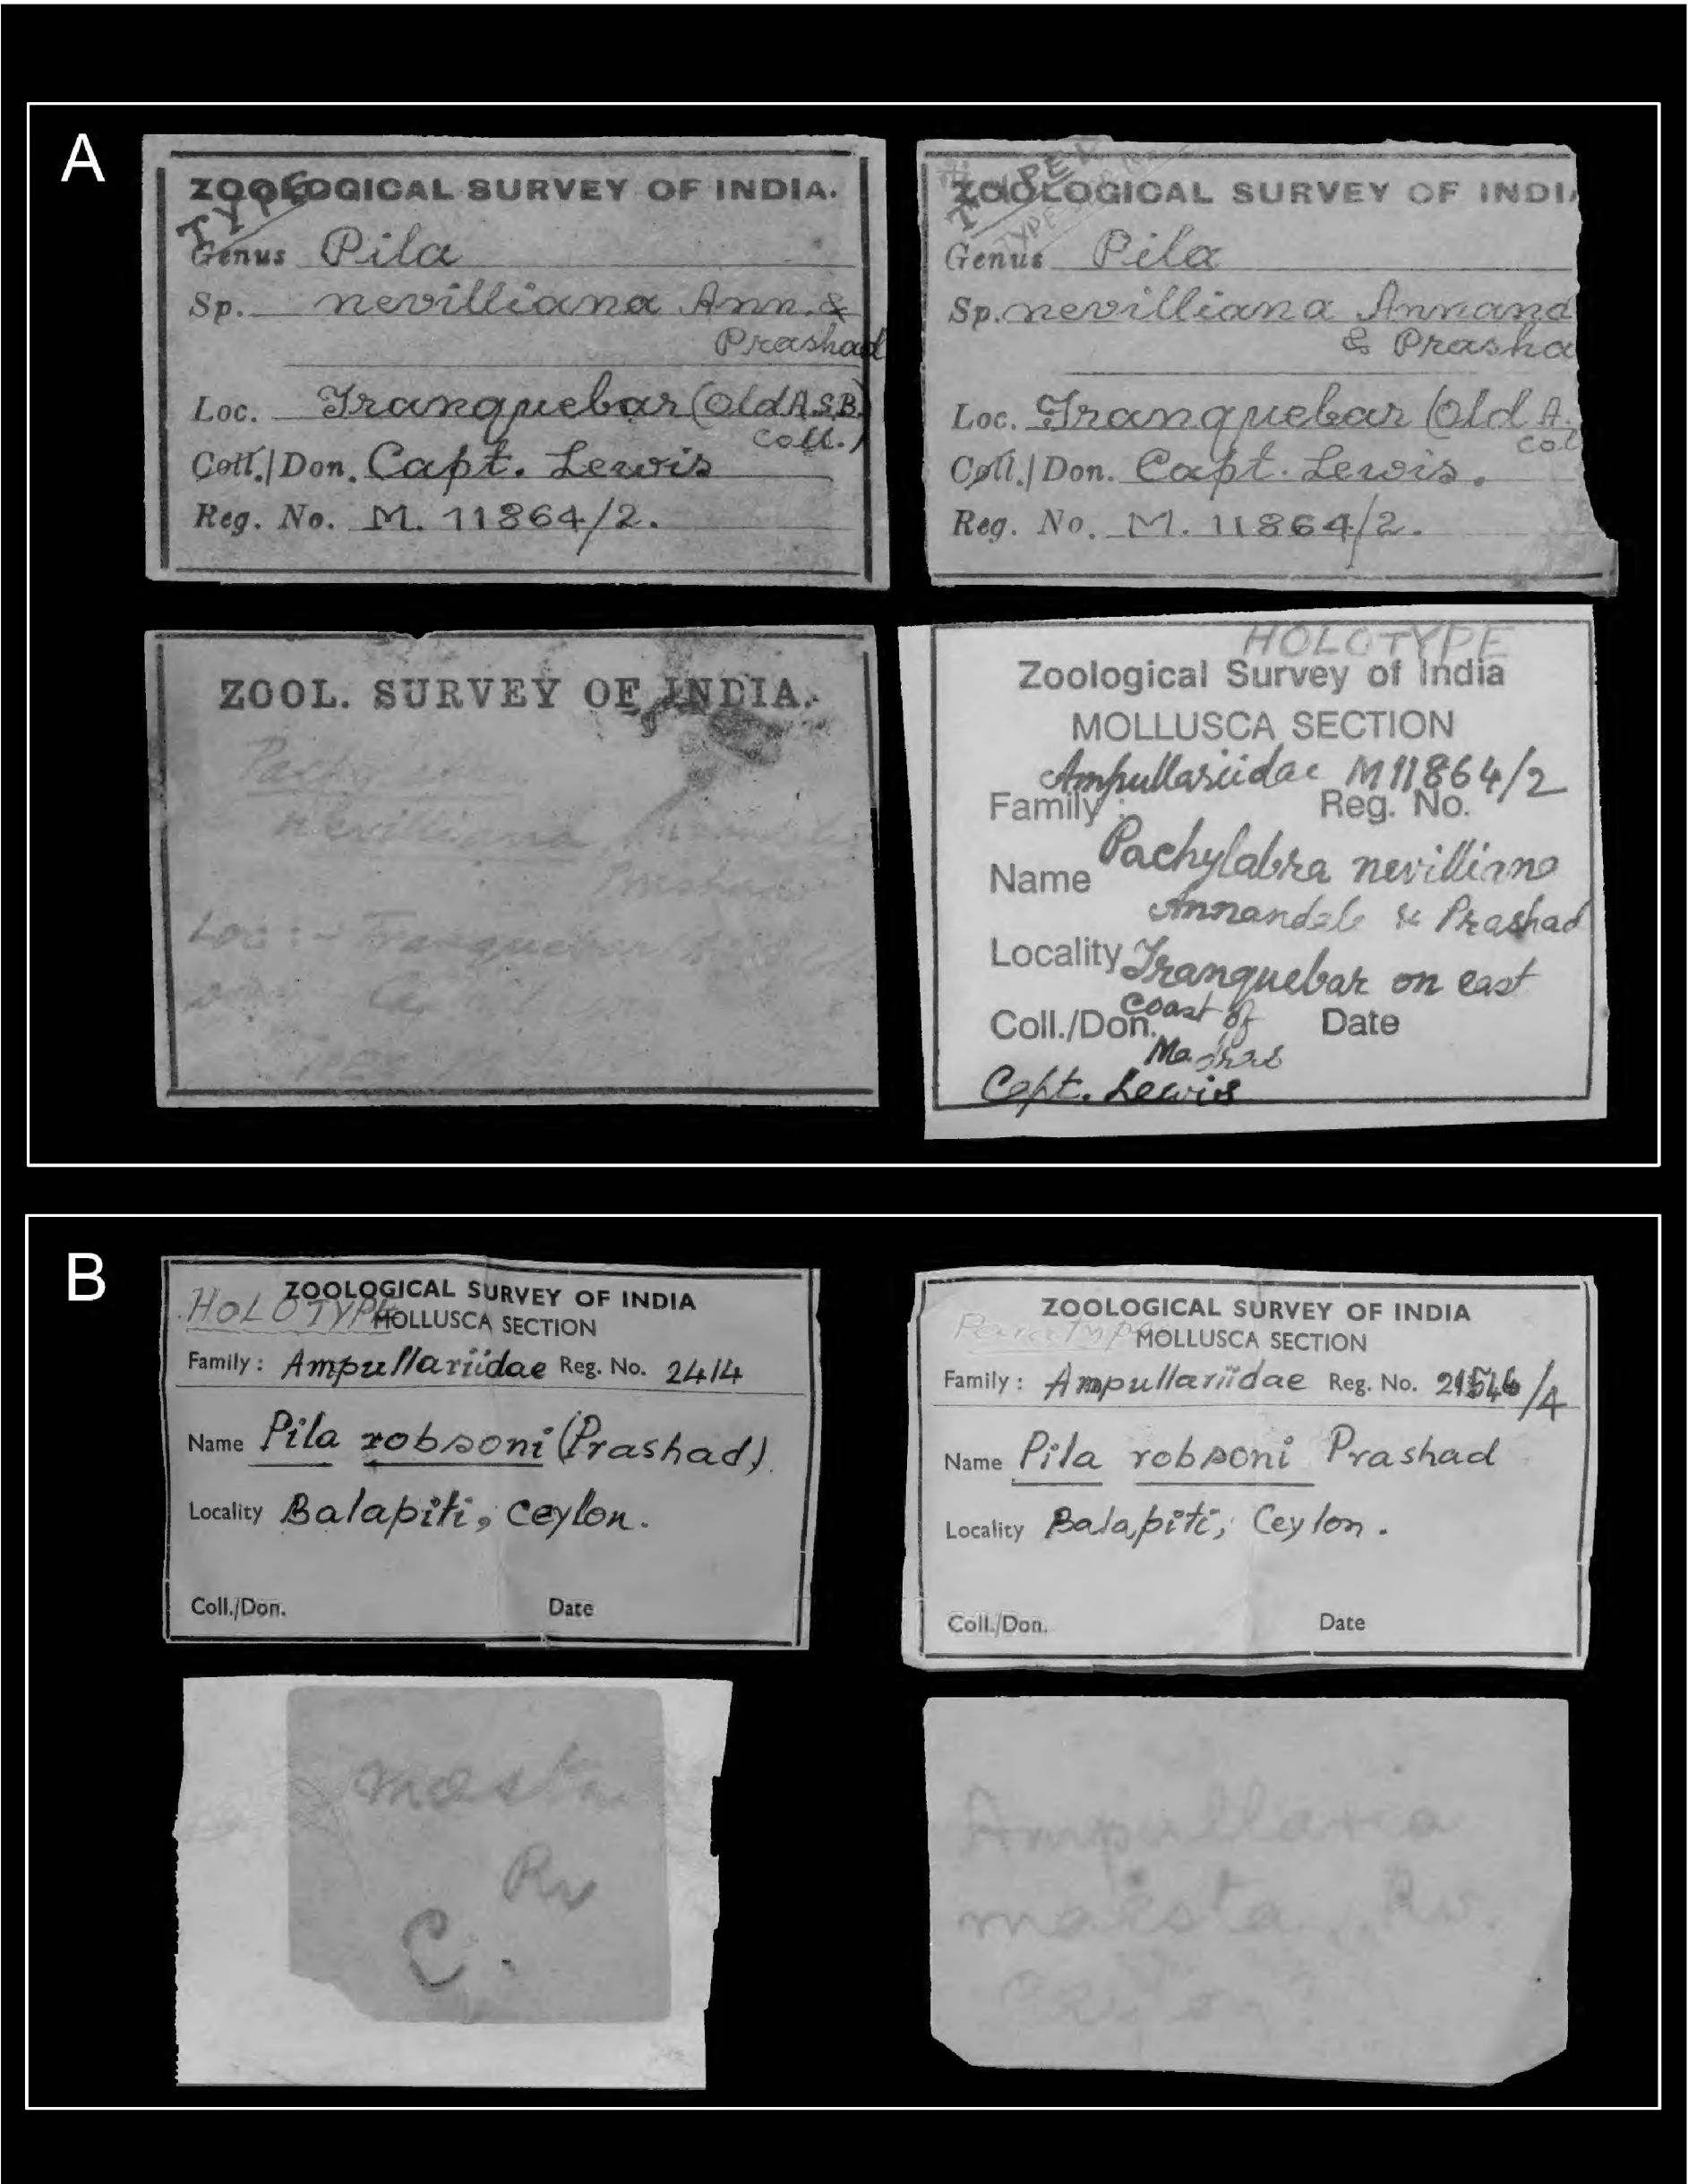 A
ZOOLOGICAL SURVEY OF INDIA.
TYPE
Genus Pila
Sp. nevilliana Ann. &
Prashad
Loc. Tranquebar (Old A.S.B.
Coll.)
Coll./Don. Capt. Lewis
Reg. No. M. 11864/2.
ZOOLOGICAL SURVEY OF INDI
TYPE
Genus Pila
Sp. nevilliana Annand
& Prasha
Loc. Tranquebar (Old A.
Col
Coll./Don. Capt. Lewis.
Reg. No. M. 11864/2.
ZOOL. SURVEY OF INDIA.
nevilliana
Prashad
Loc:- Tranquebar
HOLOTYPE
Zoological Survey of India
MOLLUSCA SECTION
Ampullariidae M11864/2
Family Reg. No.
Name Pachylabra nevilliana
Annandale & Prashad
Locality Tranquebar on east
coast of
Coll./Don. Date
Madras
Capt. Lewis
B
ZOOLOGICAL SURVEY OF INDIA
HOLOTYPE MOLLUSCA SECTION
Family: Ampullariidae Reg. No. 2414
Name Pila robsoni (Prashad).
Locality Balapiti, Ceylon.
Coll./Don. Date
ZOOLOGICAL SURVEY OF INDIA
Paratype MOLLUSCA SECTION
Family: Ampullariidae Reg. No. /4
Name Pila robsoni Prashad
Locality Balapiti, Ceylon.
Coll./Don. Date
moesta
Rv
C.
Ampullaria
moesta Rv.